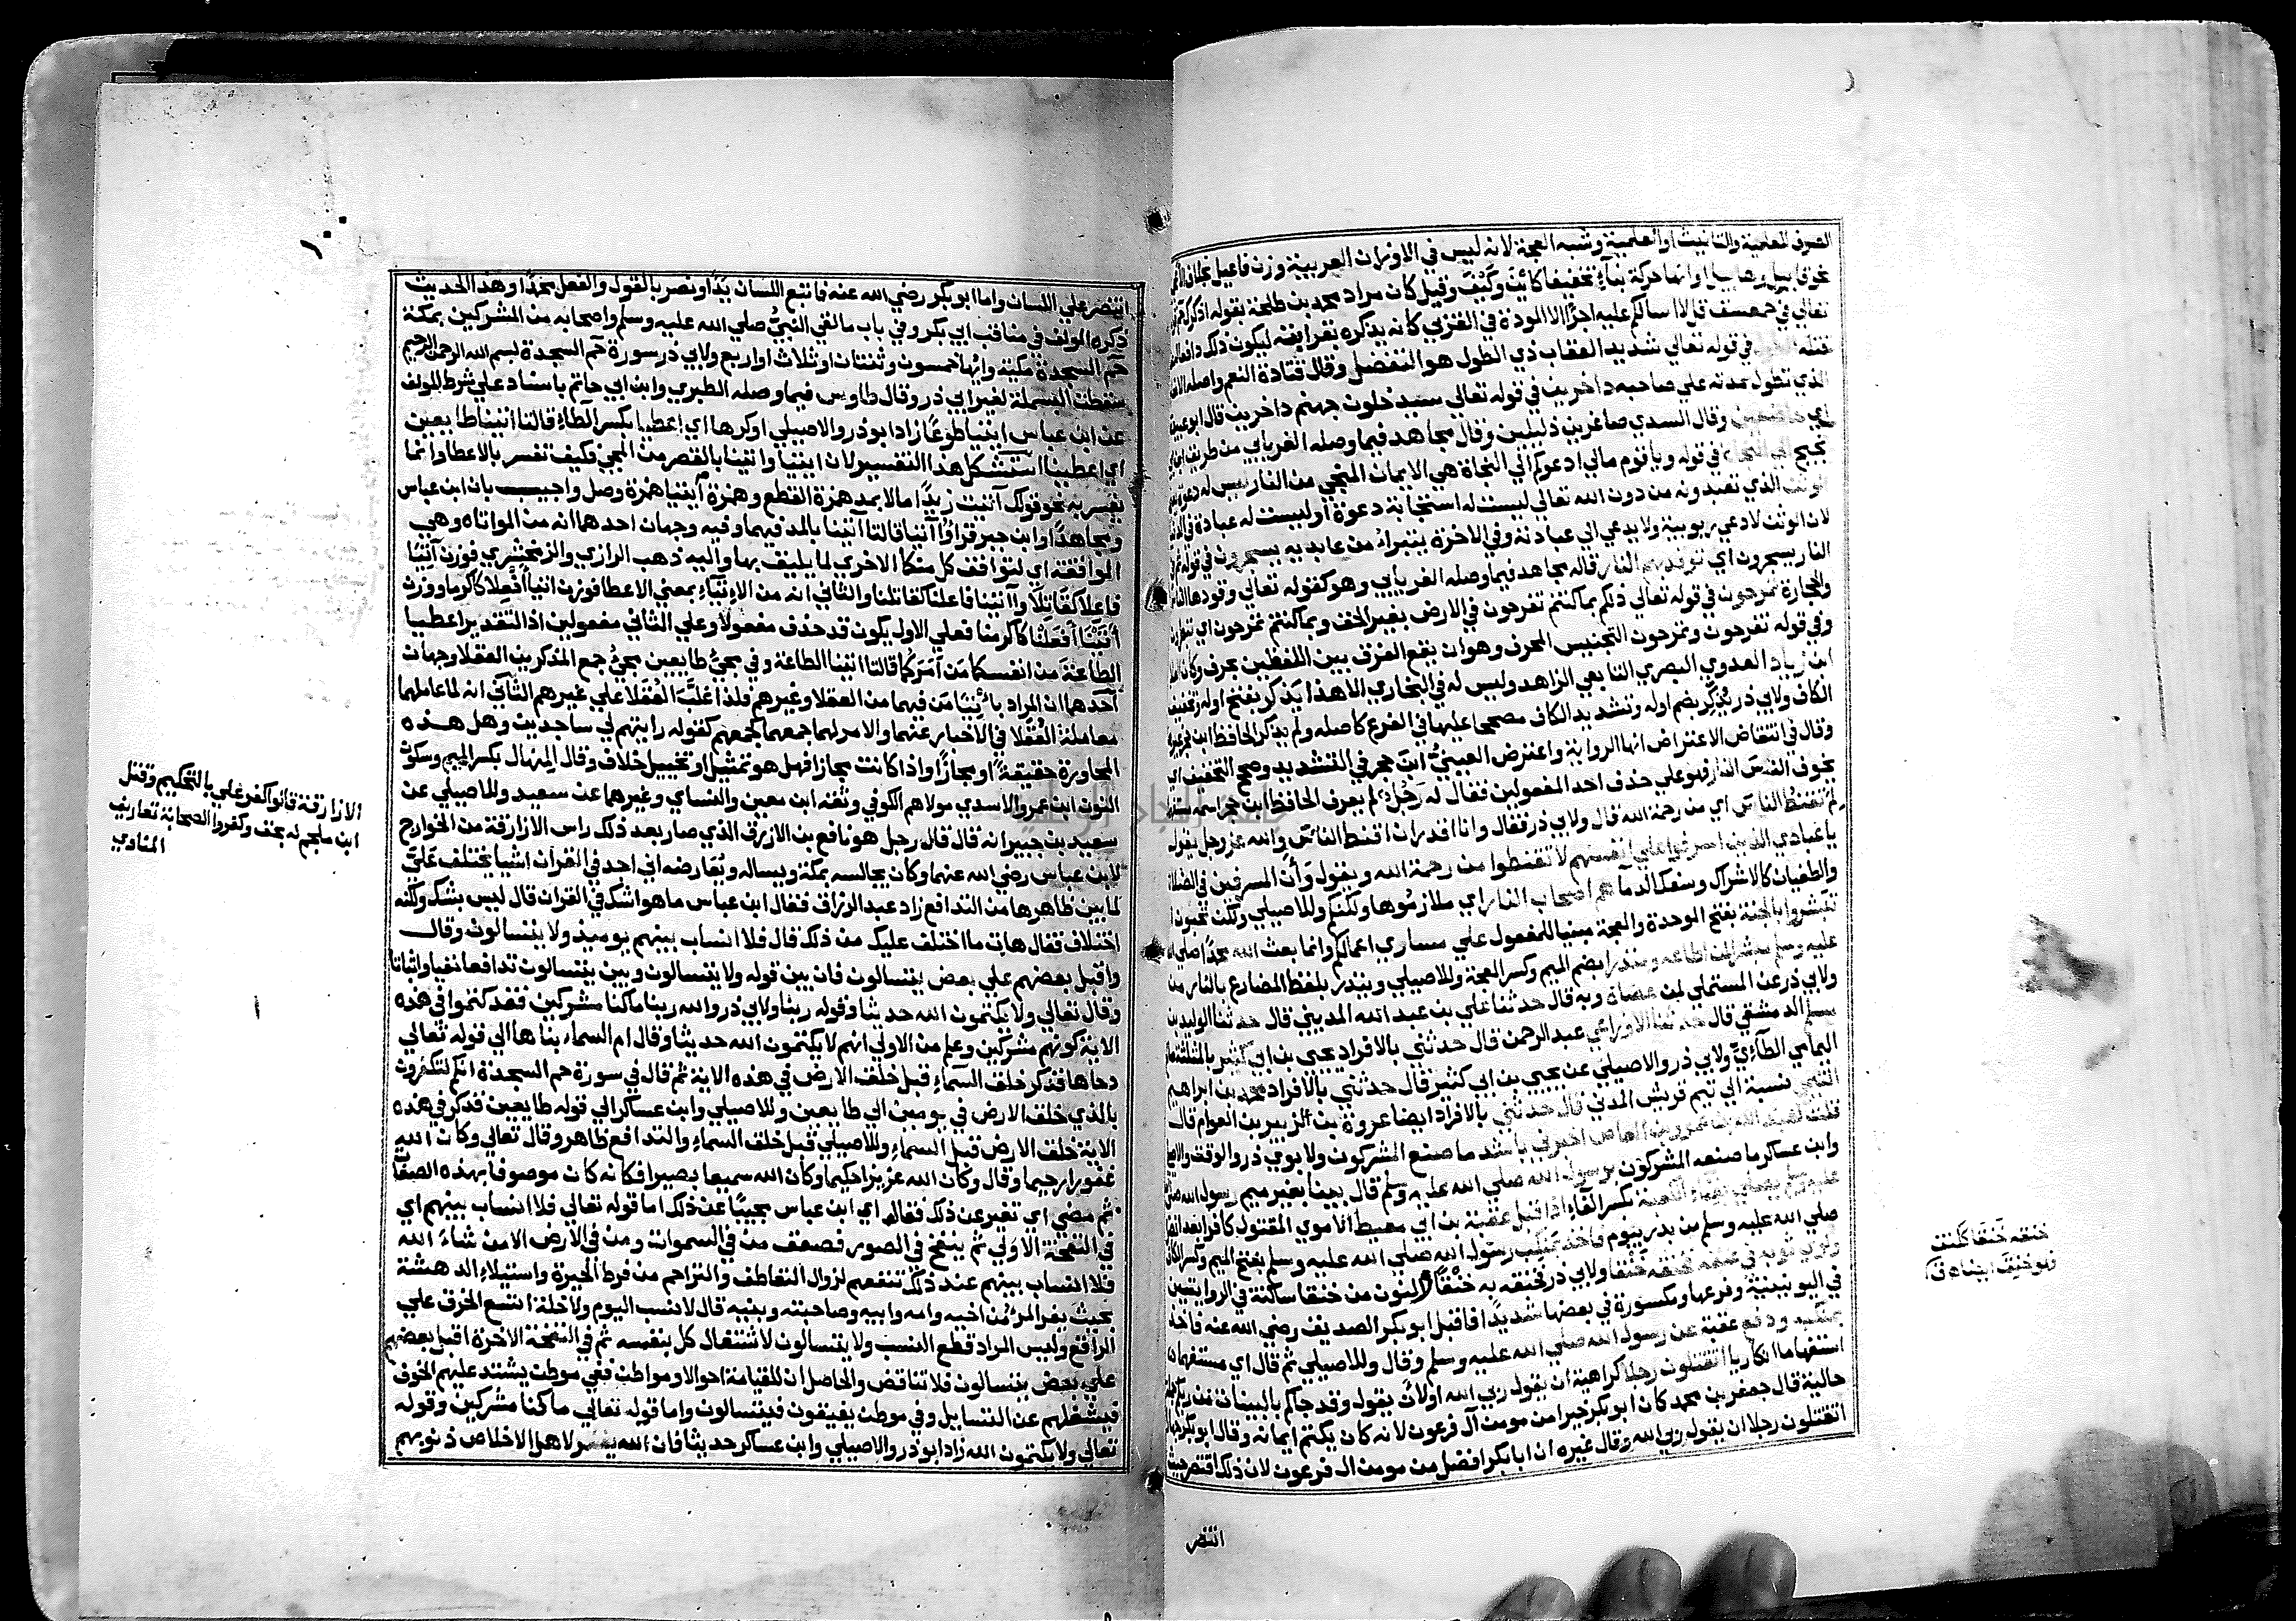 الصرف للعلمية والتانيث او العلمية وشبه العجمة لانه ليس في الاوزان العربية وزن فاعيل بخلاف الاعجمي
نحو قابيل وهابيل او انها حركة بناء تخفيفا كاين وكيف وقيل كان مراد محمد بن طلحة بقوله اذكرك حم
تعالي في حمعسق قل لا اسالكم عليه اجرا الا المودة في القربي كانه يذكره بقرابته ليكون ذلك دافعا
قتله في قوله تعالي شديد العقاب ذي الطول هو التفضل وقال قتادة النعم واصله
الذي تطول مدته علي صاحبه داخرين في قوله تعالي سيدخلون جهنم داخرين قال ابو عبيدة
اي خاضعين وقال السدي صاغرين ذليلين وقال مجاهد فيما وصله الفريابي من طريق ابن ابي
نجيح الي النجاة في قوله ويا قوم مالي ادعوكم الي النجاة هي الايمان المنجي من النار ليس له دعوة
الوثن الذي تعبدونه من دون الله تعالي ليست له استجابة دعوة او ليست له عبادة في الدنيا
لان الوثن لا دعي ربوبية ولا يدعي الي عبادته وفي الاخرة يتبرا من عابديه يسجرون في قوله ثم في
النار يسجرون اي توقد بهم النار قاله مجاهد فيما وصله الفريابي وهو كقوله تعالي وقودها الناس
والحجارة تمرحون في قوله تعالي ذلكم بما كنتم تفرحون في الارض بغير الحق وبما كنتم تمرحون اي تبطرون
وفي قوله تفرحون وتمرحون التجنيس المحرف وهو ان يقع الفرق بين اللفظين بحرف وكان العلاء
ابن زياد العدوي البصري التابعي الزاهد وليس له في البخاري الا هذا يذكر بفتح اوله وتخفيف
الكاف ولابي ذر يذكر بضم اوله وتشديد الكاف مصححا عليها في الفرع كاصله ولم يذكر الحافظ ابن حجر غيرها
وقال في انتقاض الاعتراض انها الرواية واعترض العيني ابن حجر في التشديد وصحح التخفيف اي
يخوف الناس النار فهو علي حذف احد المفعولين فقال له رجل لم يعرف الحافظ ابن حجر اسمه
لم تقنط الناس اي من رحمة الله قال ولابي ذر فقال وانا اقدر ان اقنط الناس والله عز وجل يقول
يا عبادي الذين اسرفوا علي انفسهم لا تقنطوا من رحمة الله ويقول وان المسرفين في الضلالة
والطغيان كالاشراك وسفك الدماء هم اصحاب النار اي ملازموها ولكنكم وللاصيلي ولكن تحبون ان
تبشروا بالجنة بفتح الموحدة والمعجمة مبنيا للمفعول علي مساوي اعمالكم وانما بعث الله محمدا صلي الله
عليه وسلم مبشرا لمن اطاعه ومنذرا بضم الميم وكسر المعجمة وللاصيلي وينذر بلفظ المضارع بالنار من
ولابي ذر عن المستملي لمن عصاه وبه قال حدثنا علي بن عبد الله المديني قال حدثنا الوليد بن
مسلم الدمشقي قال حدثنا الاوزاعي عبد الرحمن قال حدثني بالافراد يحيي بن ابي كثير بالمثلثة
اليمامي الطائي ولابي ذر والاصيلي عن يحيي بن ابي كثير قال حدثني بالافراد محمد بن ابراهيم
التيمي نسبة الي تيم قريش المدني قال حدثني بالافراد ايضا عروة بن الزبير بن العوام قال
قلت لعبد الله بن عمرو بن العاص اخبرني باشد ما صنع المشركون ولابوي ذر والوقت والاصيلي
وابن عساكر ما صنعه المشركون برسول الله صلي الله عليه وسلم قال بينا بغير ميم رسول الله صلي
عليه وسلم يصلي بفناء الكعبة بكسر الفاء اذ اقبل عقبة بن ابي معيط الاموي المقتول كافرا بعد
صلي الله عليه وسلم من بدر بيوم فاخذ بمنكب رسول الله صلي الله عليه وسلم بفتح الميم وكسر الكاف
ولوي ثوبه في عنقه فخنقه خنقا ولابي ذر فخنقه به خنقا النون من خنقا ساكنة في الروايتين
في اليونينية وفرعها ومكسورة في بعضها شديدا فاقبل ابو بكر الصديق رضي الله عنه فاخذ
بمنكبه ودفع عقبة عن رسول الله صلي الله عليه وسلم وقال وللاصيلي ثم قال اي مستفهما
استفهاما انكاريا اتقتلون رجلا كراهية ان يقول ربي الله او لان يقول وقد جاكم بالبينات من ربكم جملة
حالية قال جعفر بن محمد كان ابو بكر خيرا من مومن آل فرعون لانه كان يكتم ايمانه وقال ابو بكر جهارا
اتقتلون رجلا ان يقول ربي الله وقال غيره ان ابا بكر افضل من مومن ال فرعون لان ذلك اقتصر حيث
انتصر
خنقه خنقا ككتف
فهو خنق ايضا
انتصر علي اللسان واما ابو بكر رضي الله عنه فاتبع اللسان يدا ونصر بالقول والفعل محمدا وهذا الحديث
ذكره المولف في مناقب ابي بكر وفي باب ما لقي النبي صلي الله عليه وسلم واصحابه من المشركين بمكة
حم السجدة مكية وايها خمسون وثنتان او ثلاث او اربع ولابي ذر سورة حم السجدة بسم الله الرحمن الرحيم
سقطت البسملة لغير ابي ذر وقال طاوس فيما وصله الطبري وابن ابي حاتم باسناد علي شرط المولف
عن ابن عباس ايتيا طوعا زاد ابو ذر والاصيلي او كرها اي اعطيا بكسر الطاء قالتا اتينا طايعين
اي اعطينا استشكل هذا التفسير لان ايتيا واتينا بالقصر من المجي فكيف تفسر بالاعطا وانما
يفسر به نحو قولك آتيت زيدا مالا بمد همزة القطع وهمزة ايتيا همزة وصل واجيب بان ابن عباس
ومجاهدا وابن جبير قراوا آتيا قالتا آتينا بالمد فيهما وفيه وجهان احدهما انه من المواتاه وهي
الموافقة اي لتوافق كل منكما الاخري لما يليق بها واليه ذهب الرازي والزمخشري فوزن آتيا
فاعلا كقاتلا وآتينا فاعلنا كقاتلنا والثاني انه من الايتاء بمعني الاعطا فوزن اتيا افعلا كاكرما ووزن
آتينا افعلنا كاكرمنا فعلي الاول يكون قد حذف مفعولا وعلي الثاني مفعولين اذ التقدير اعطيا
الطاعة من انفسكما من امركما قالتا اتينا الطاعة وفي مجي طايعين مجي جمع المذكرين العقلا وجهان
احدهما ان المراد باتينا من فيهما من العقلا وغيرهم فلذا غلب العقلا علي غيرهم الثاني انه لما عاملهما
معاملة العقلا في الاخبار عنهما والامر لهما جمعهما كجمعهم كقوله رايتهم لي ساجدين وهل هذه
المحاورة حقيقة او مجازا واذا كانت مجازا فهل هو تمثيل او تخييل خلاف وقال المنهال بكسر الميم وسكون
النون ابن عمرو الاسدي مولاهم الكوفي وثقه ابن معين والنساي وغيرهما عن سعيد وللاصيلي عن
سعيد بن جبير انه قال قال رجل هو نافع بن الازرق الذي صار بعد ذلك راس الازارقة من الخوارج
لابن عباس رضي الله عنهما وكان يجالسه بمكة ويساله ويعارضه اني اجد في القران اشيا تختلف علي
لما بين ظاهرها من التدافع زاد عبد الرزاق فقال ابن عباس ما هو اشك في القران قال ليس بشك ولكنه
اختلاف فقال هات ما اختلف عليك من ذلك قال فلا انساب بينهم يوميذ ولا يتسالون وقال
واقبل بعضهم علي بعض يتسالون فان بين قوله ولا يتسالون وبين يتسالون تدافعا نفيا واثباتا
وقال تعالي ولا يكتمون الله حديثا وقوله ربنا ولابي ذر والله ربنا ما كنا مشركين فقد كتموا في هذه
الاية كونهم مشركين وعلم من الاولي انهم لا يكتمون الله حديثا وقال ام السماء بناها الي قوله تعالي
دحاها فذكر خلق السماء قبل خلق الارض في هذه الاية ثم قال في سورة حم السجدة ائنكم لتكفرون
بالذي خلق الارض في يومين الي طايعين وللاصيلي وابن عساكر الي قوله طايعين فذكر في هذه
الاية خلق الارض قبل السماء وللاصيلي قبل خلق السماء والتدافع ظاهر وقال تعالي وكان الله
غفورا رحيما وقال وكان الله عزيزا حكيما وكان الله سميعا بصيرا فكانه كان موصوفا بهذه الصفات
ثم مضي اي تغير عن ذلك فقاله اي ابن عباس مجيبا عن ذلك اما قوله تعالي فلا انساب بينهم اي
في النفخة الاولي ثم ينفخ في الصور فصعق من في السموات ومن في الارض الا من شاء الله
فلا انساب بينهم عند ذلك تنفعهم لزوال التعاطف والتراحم من فرط الحيرة واستيلاء الدهشة
بحيث يفر المرء من اخيه وامه وابيه وصاحبته وبنيه قال لا نسب اليوم ولا خلة اتسع الخرق علي
الراقع وليس المراد قطع النسب ولا يتسالون لاشتغال كل بنفسه ثم في النفخة الاخرة اقبل بعضهم
علي بعض يتسالون فلا تناقض والحاصل ان للقيامة احوالا ومواطن ففي موطن يشتد عليهم الخوف
فيشغلهم عن التسايل وفي موطن يفيقون فيتسالون واما قوله تعالي ما كنا مشركين وقوله
تعالي ولا يكتمون الله زاد ابو ذر والاصيلي وابن عساكر حديثا فان الله يغفر لاهل الاخلاص ذنوبهم
الازارقة قالوا كفر علي بالتحكيم وقتل
ابن ملجم له بحق وكفروا الصحابة تعاريف
المناوي